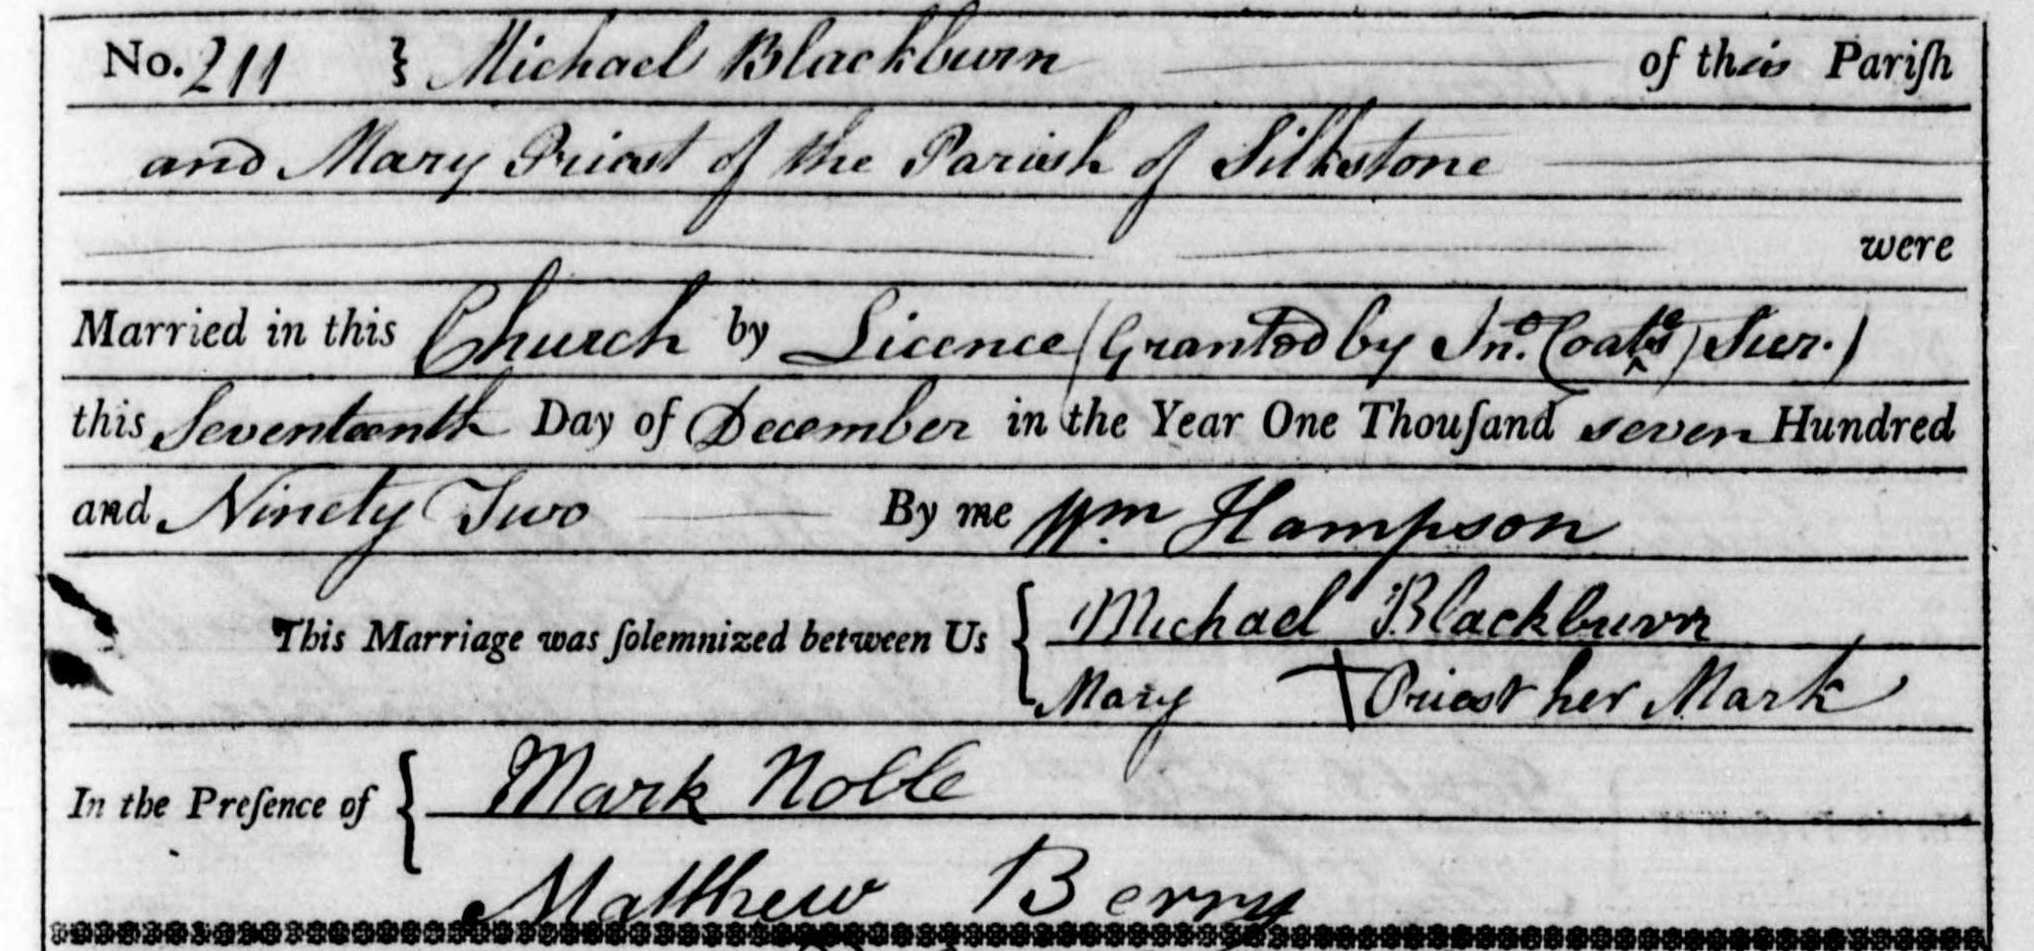 No. 211 } Michael Blackburn of this Pariſh
and Mary Priest of the Parish of Silkstone
were
Married in this Church by Licence (Granted by Jno. Coates, Sur.)
this Seventeenth Day of December in the Year One Thouſand seven Hundred
and Ninety Two By me Wm. Hampson
This Marriage was ſolemnized between Us { Michael Blackburn
Mary + Priest her Mark
In the Preſence of { Mark Noble
Matthew Berry